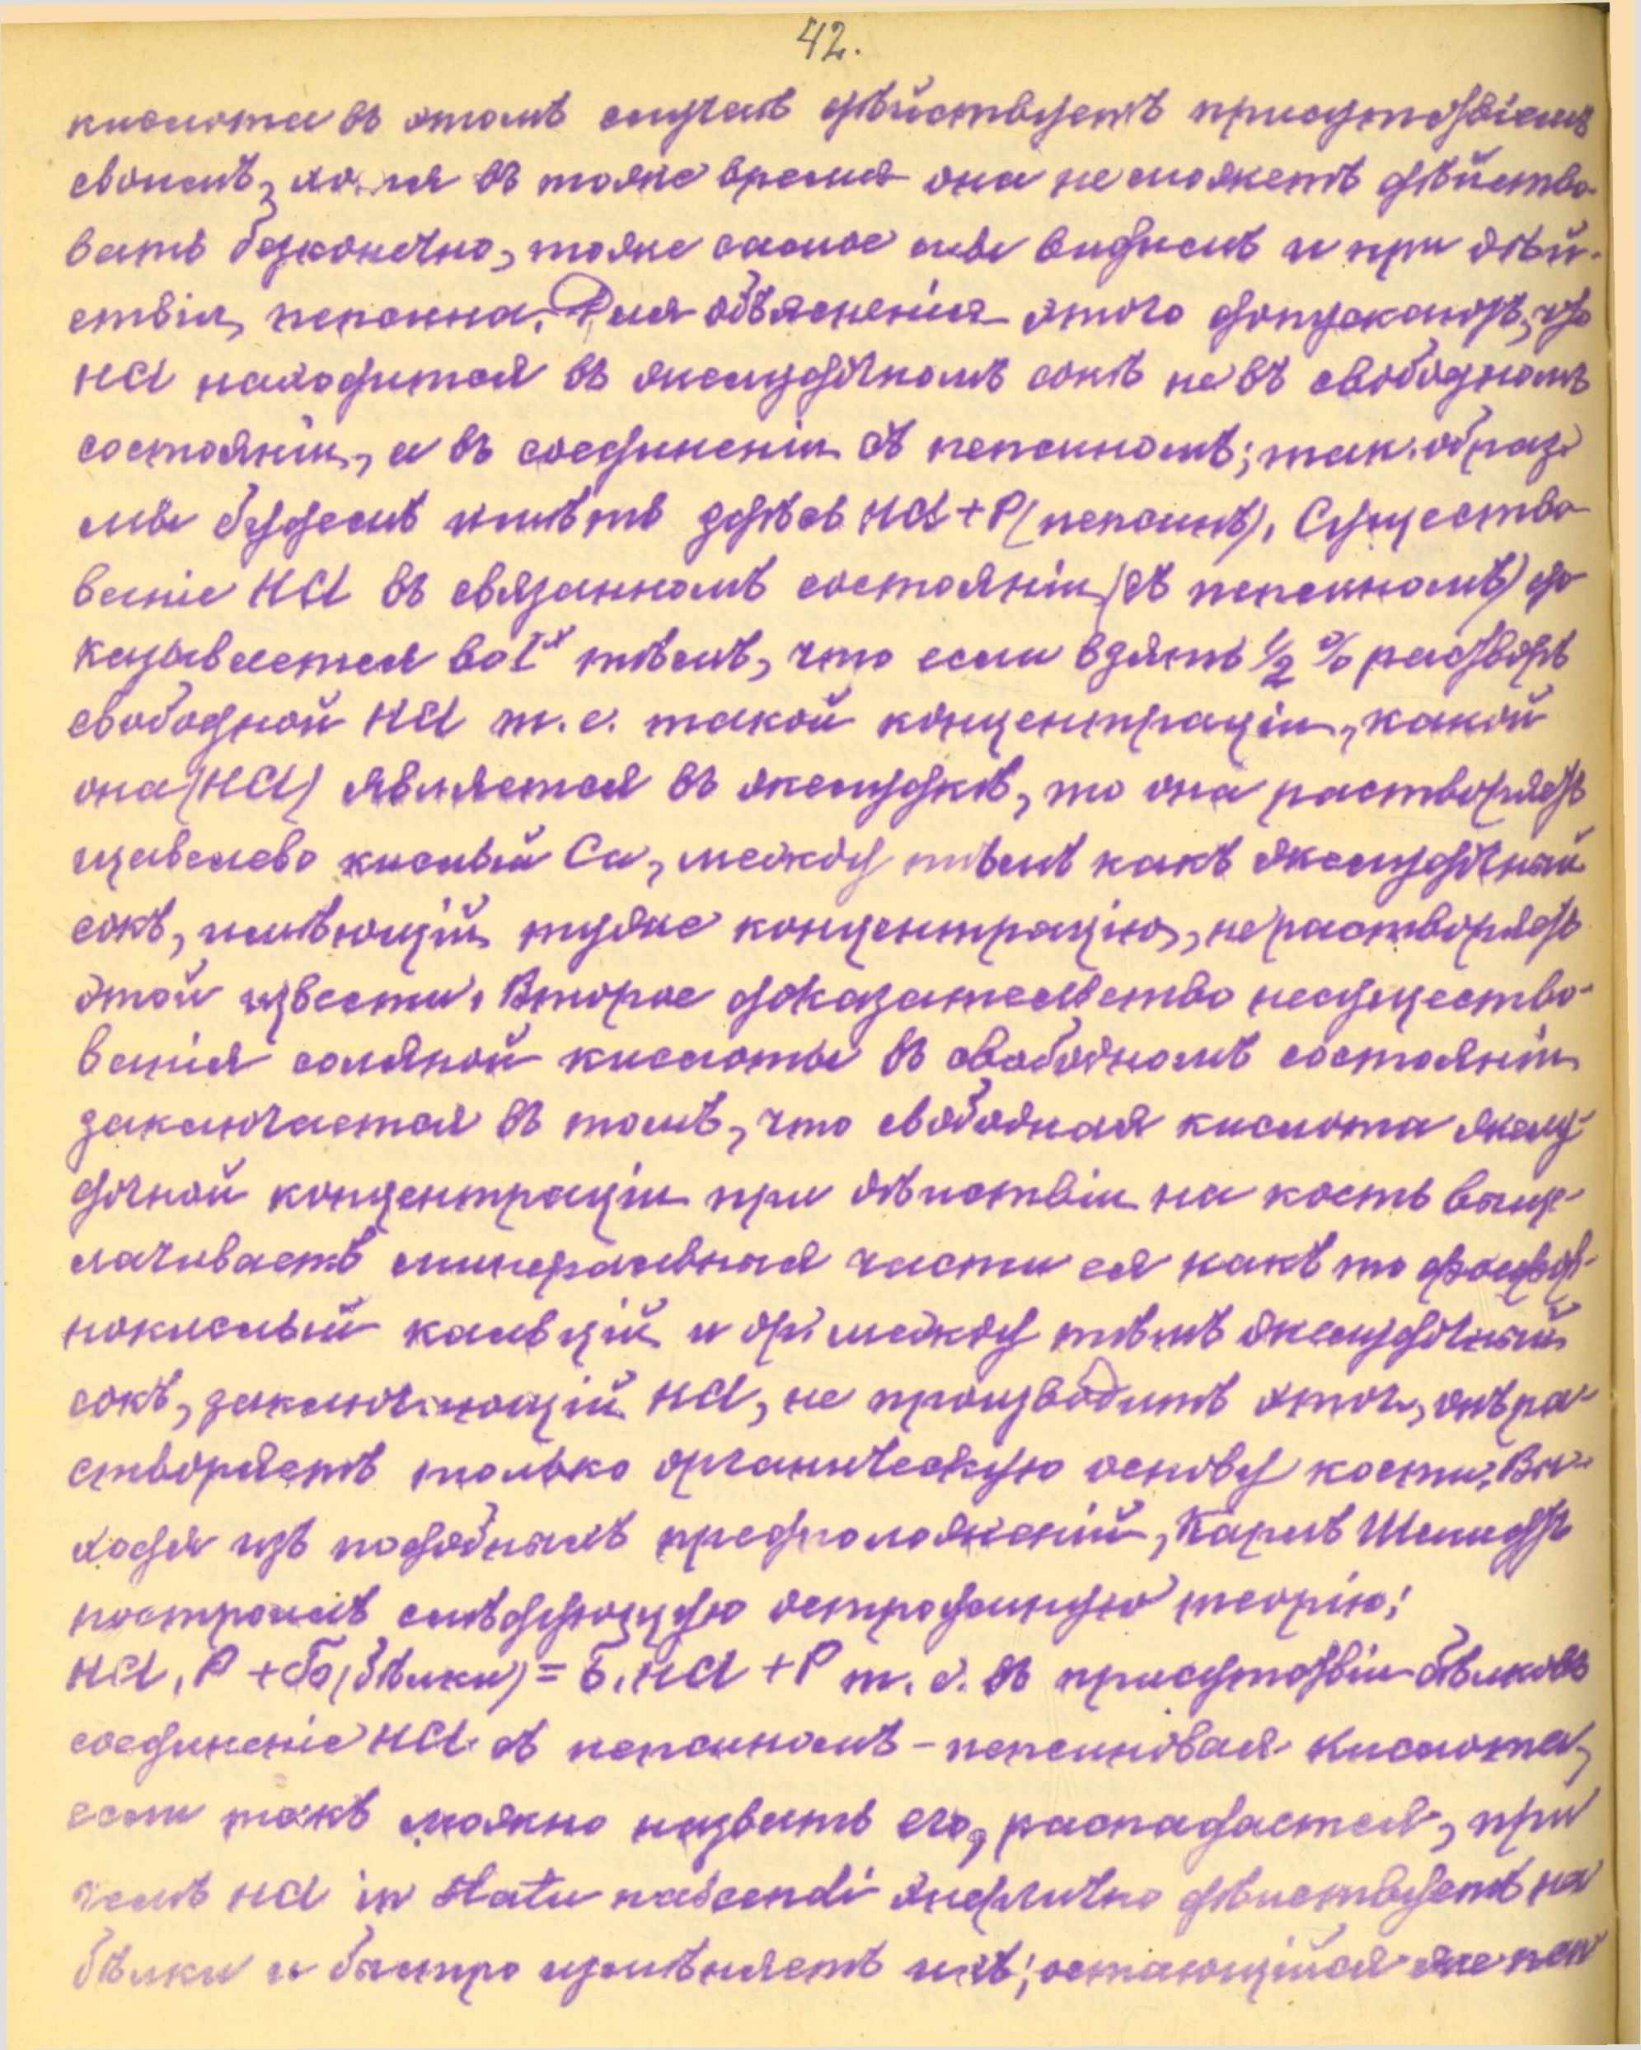 42.
кислота въ этомъ случаѣ дѣйствуетъ присутствіемъ
своимъ, хотя въ тоже время она не можетъ дѣйство-
вать безконечно, тоже самое мы видимъ и при дѣй-
ствіи пепсина. Для объясненія этого допускаютъ, что
HCl находится въ желудочномъ сокѣ не въ свободномъ
состояніи, а въ соединеніи съ пепсиномъ; так. образ.
мы будемъ имѣть здѣсь HCl + P (пепсинъ). Существо-
ваніе HCl въ связанномъ состояніи (съ пепсиномъ) до-
казывается во Iх тѣмъ, что если взять ½ % растворъ
свободной HCl т. е. такой концентраціи, какой
она (HCl) является въ желудкѣ, то она растворяетъ
щавелево кислый Ca, между тѣмъ какъ желудочный
сокъ, имѣющій туже концентрацію, не растворяетъ
этой извести. Второе доказательство несущество-
ванія соляной кислоты въ свободномъ состояніи
заключается въ томъ, что свободная кислота желу-
дочной концентраціи при дѣйствіи на кость выще-
лачиваетъ минеральныя части ея какъ то фосфор-
нокислый кальцій и др. между тѣмъ желудочный
сокъ, заключающій HCl, не производитъ этого, онъ ра-
створяетъ только органическую основу кости. Вы-
ходя изъ подобныхъ предположеній, Карлъ Шмидтъ
построилъ слѣдующую остроумную теорію:
HCl, P + Б (бѣлки) = Б. HCl + P т. е. въ присутствіи бѣлковъ
соединеніе HCl съ пепсиномъ - пепсиновая кислота,
если такъ можно назвать его, распадается, при
чемъ HCl in statu nascendi энергично дѣйствуетъ на
бѣлки и быстро измѣняетъ ихъ; остающійся же пеп